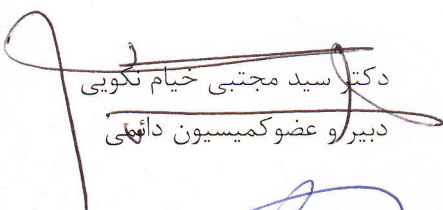 دکتر سید مجتبی خیام نکویی
دبیر و عضو کمیسیون دائمی